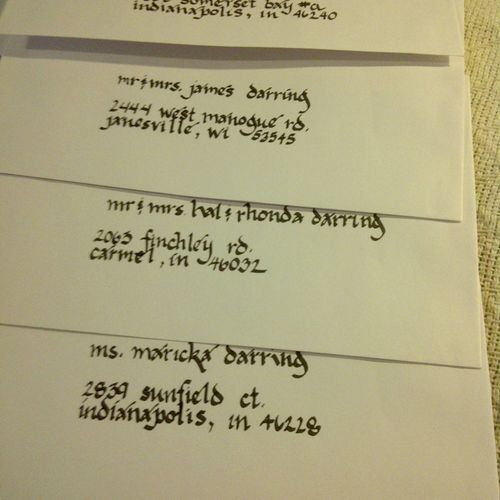 somerset bay #a
indianapolis, in 46240
mr & mrs. james darring
2444 west manogue rd.
janesville, wi 53545
mr & mrs. hal & rhonda darring
2063 finchley rd.
carmel, in 46032
ms. maricka darring
2839 sunfield ct.
indianapolis, in 46228